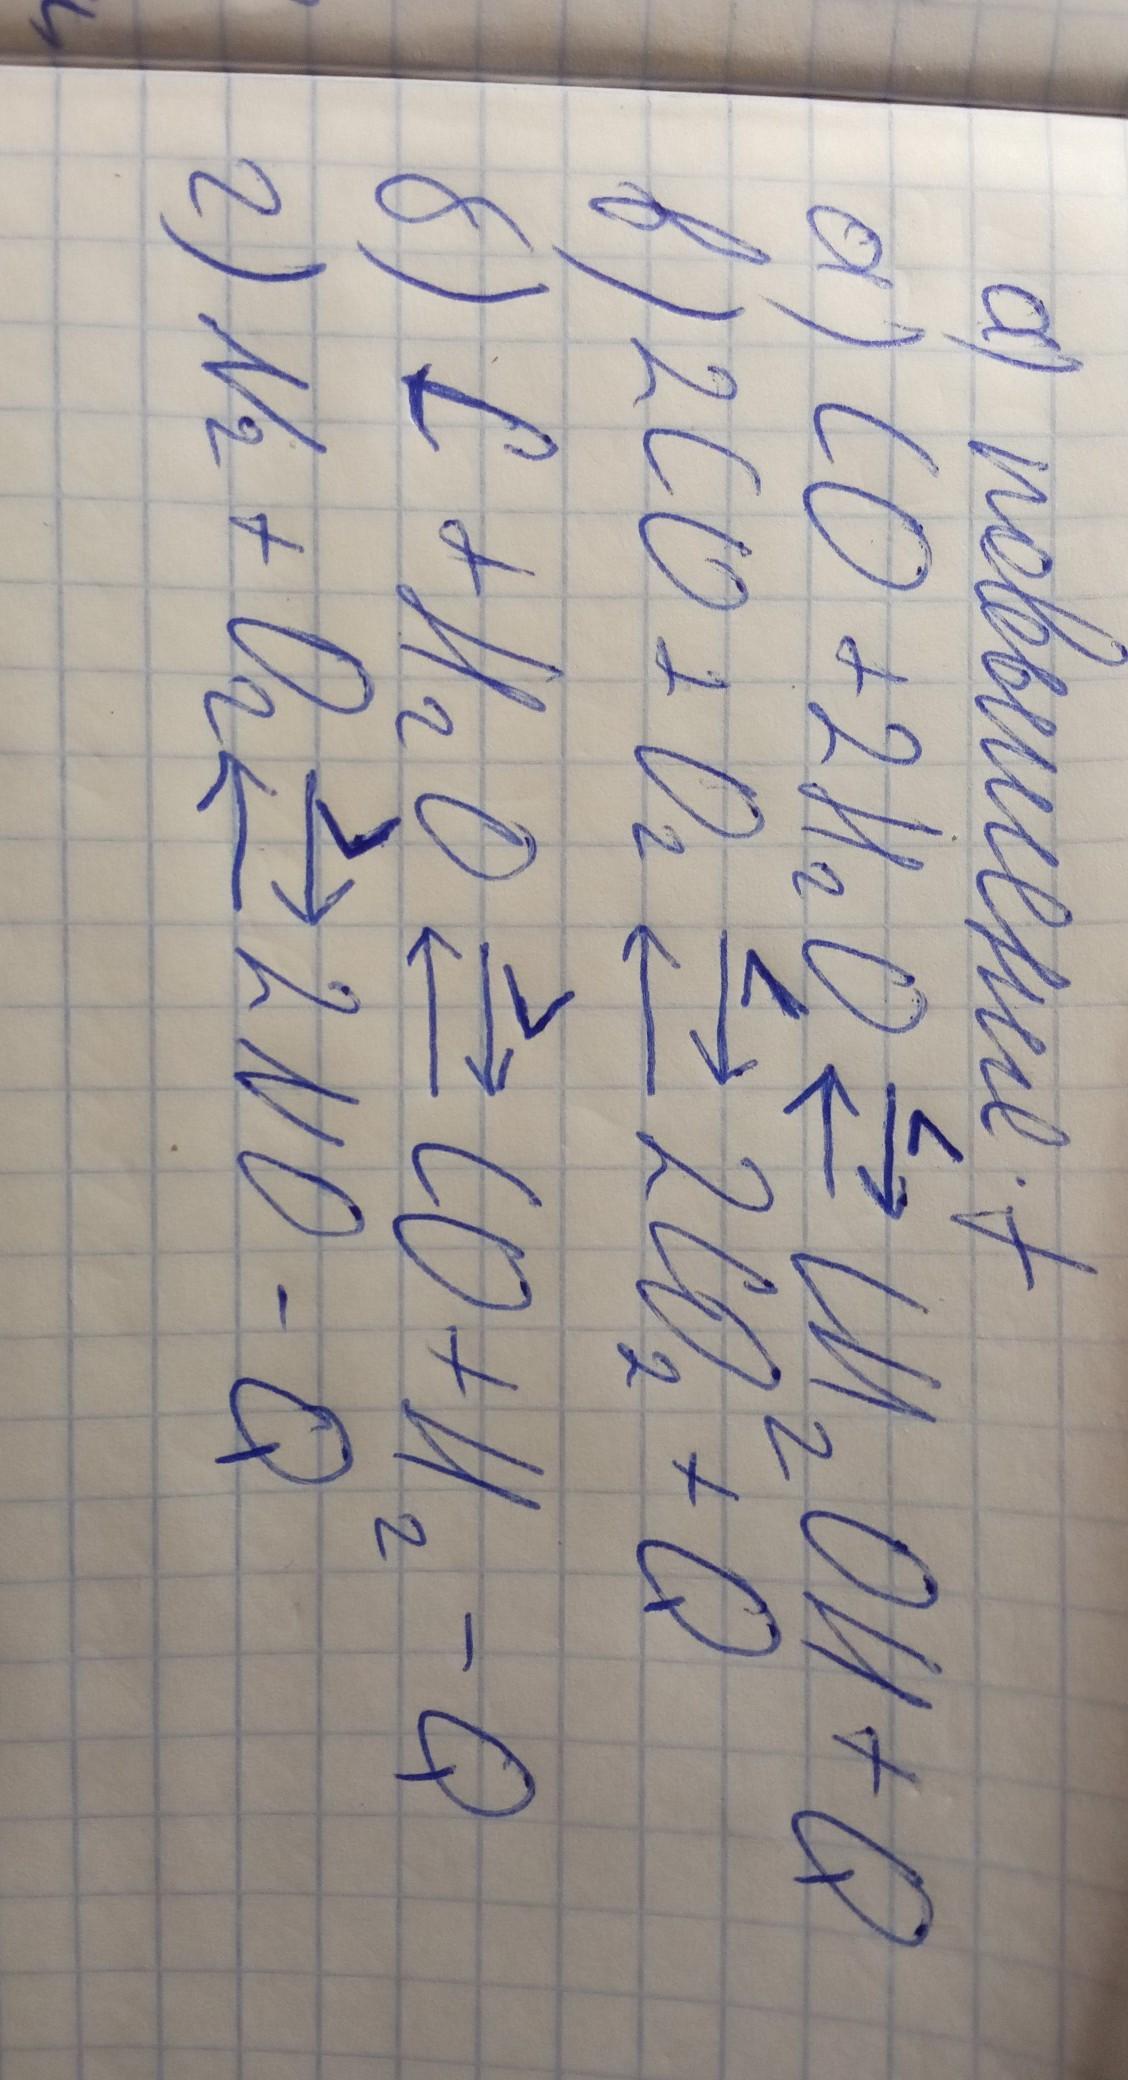 а) повышение t
а) CO + 2H₂O ⇄ < CH₂OH + Q
в) 2CO + O₂ ⇄ < 2CO₂ + Q
б) C + H₂O ⇄ > CO + H₂ - Q
г) N₂ + O₂ ⇄ > 2NO - Q